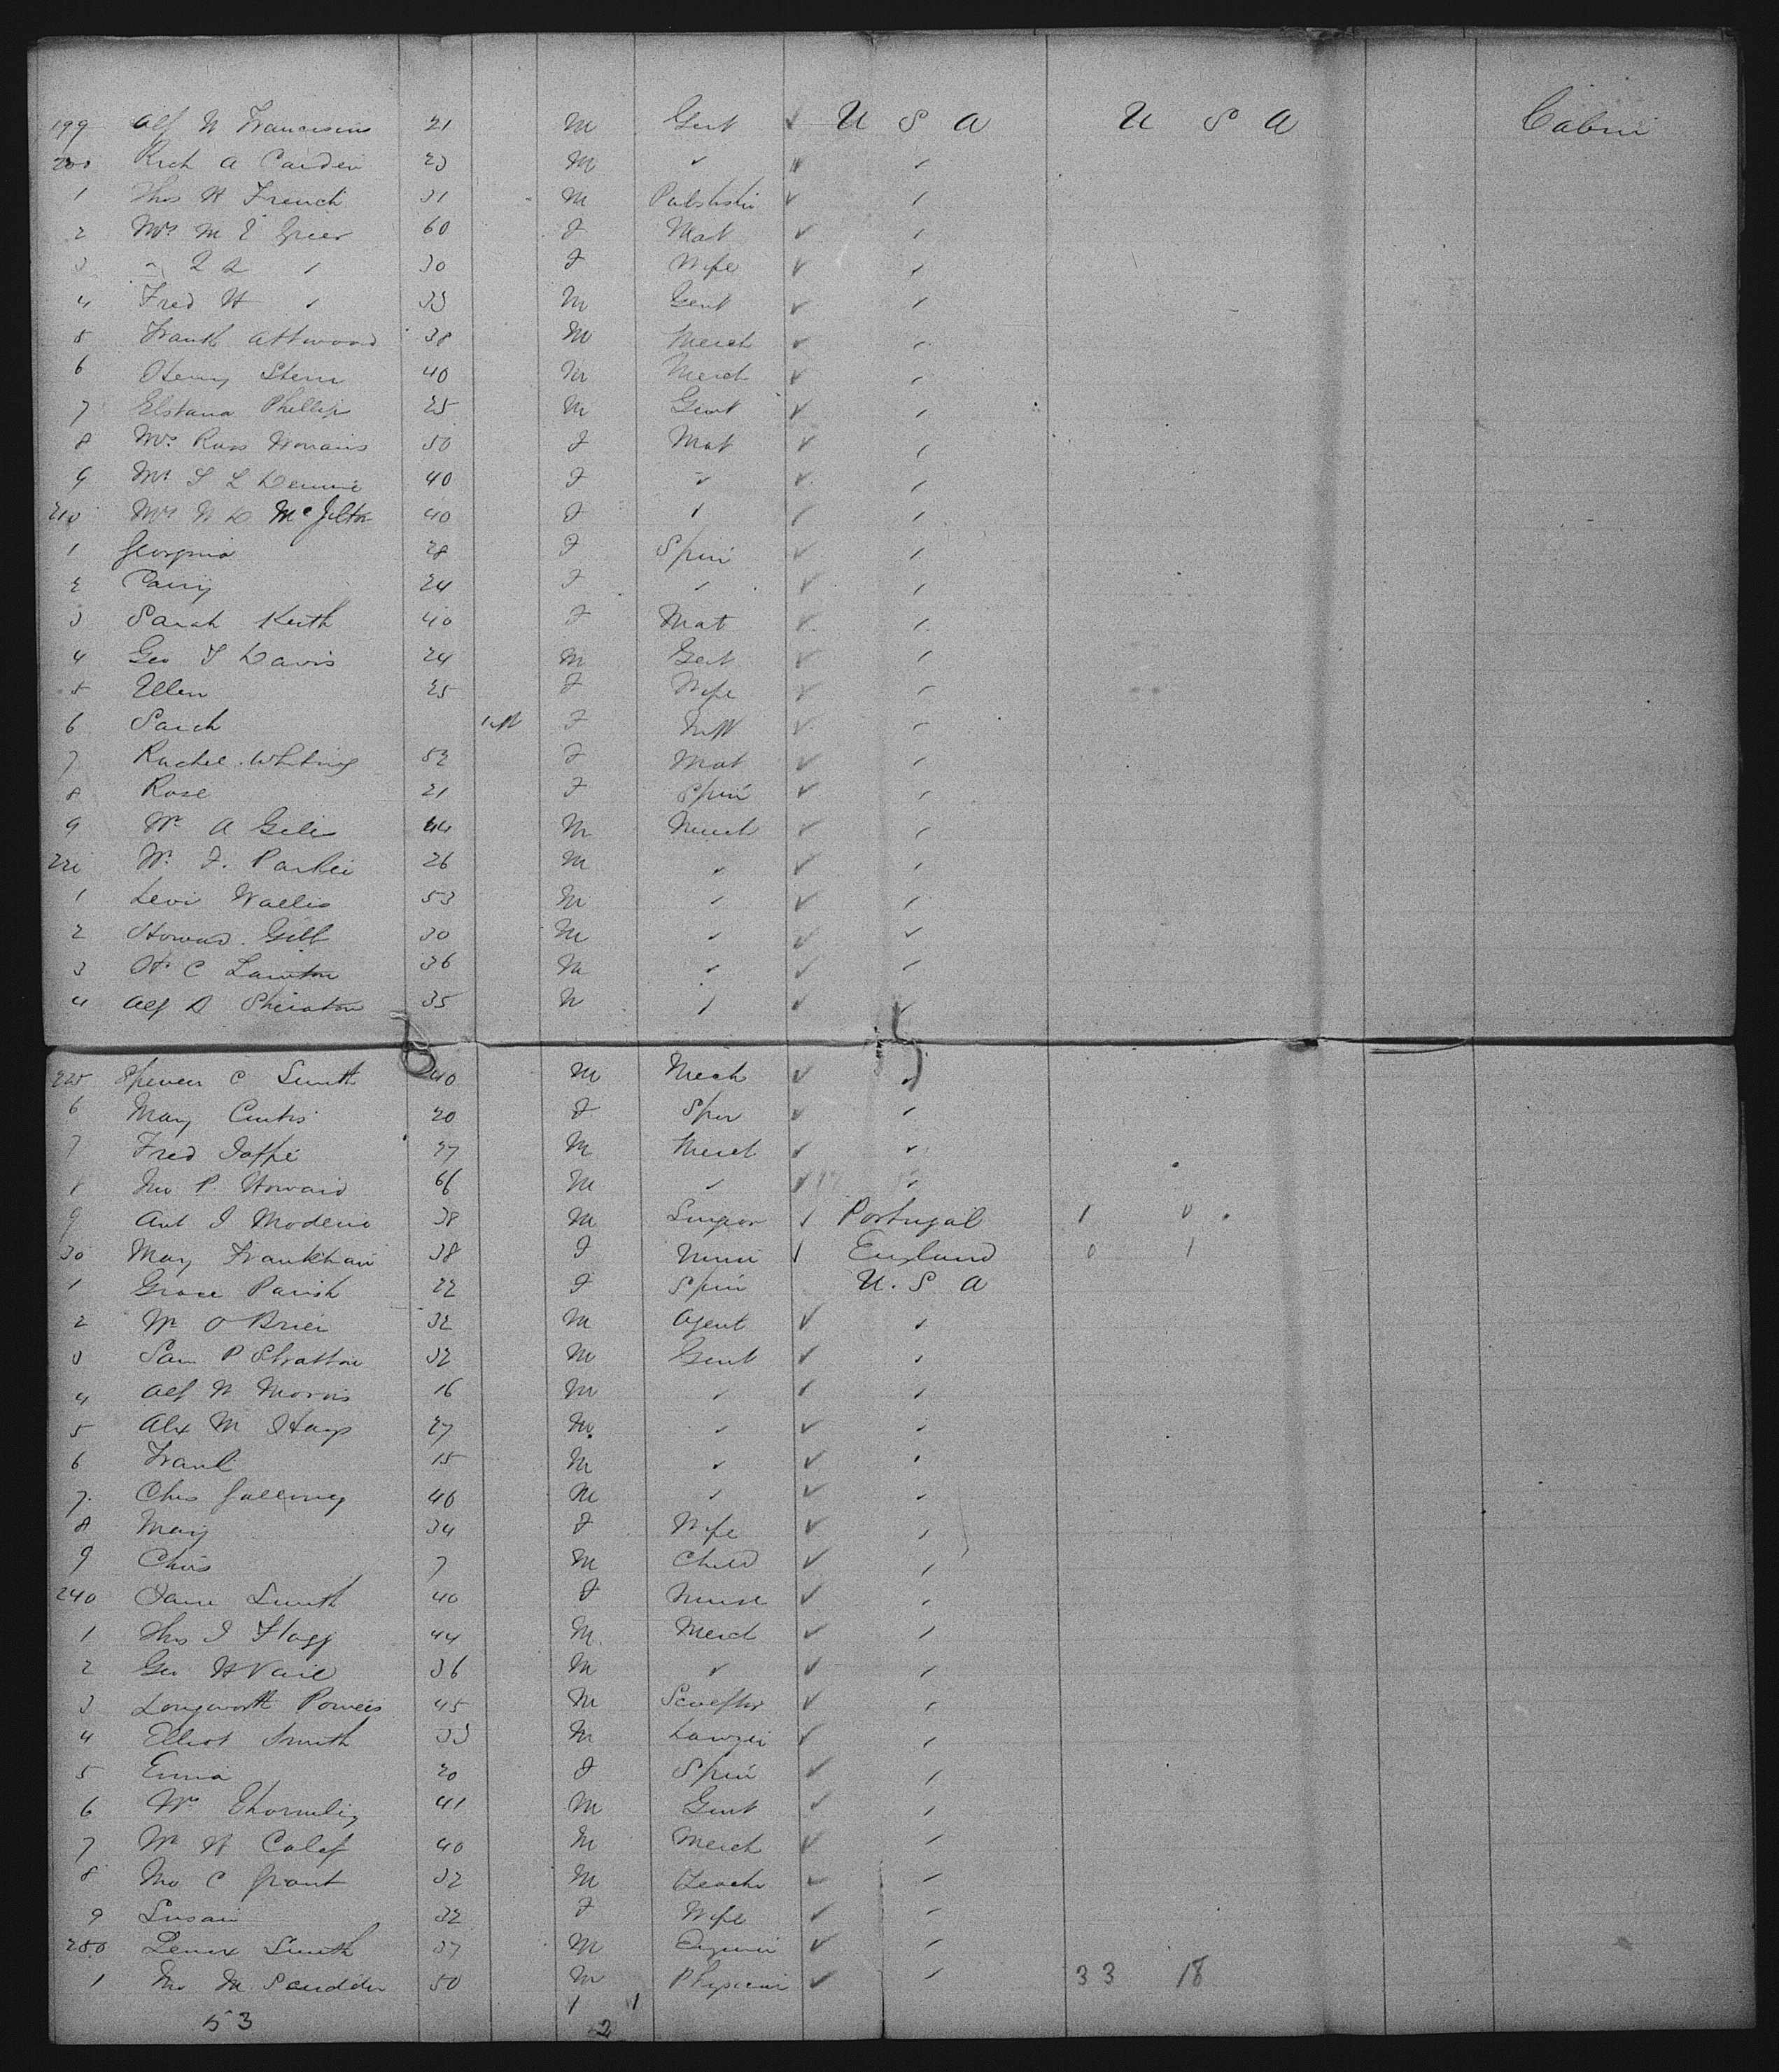 199 Alf W Franciscus 21 M Gent ✓ U S A U S A Cabin
200 Rich A Carden 23 M " ✓ "
1 Thos H French 31 M ✓ "
2 Mrs M E Greer 60 F Mat ✓ "
3 " " 30 F Wife ✓ "
4 Fred H " 33 M Gent ✓ "
5 Frank Attwood 38 M Merch ✓ "
6 Henry Stern 40 M Merch ✓ "
7 Phillip 25 M Gent ✓ "
8 Mrs Ross 50 F Mat ✓ "
9 Mrs S L Dennie 40 F " ✓ "
210 Mrs W D McJilton 40 F " ✓ "
1 Georgina 28 F Spin ✓ "
2 24 F " ✓ "
3 Sarah Keith 40 F Mat ✓ "
4 Geo T Davis 24 M Gent ✓ "
5 Ellen 25 F Wife ✓ "
6 Sarah Inft F Inft ✓ "
7 Rachel Whiting 52 F Mat ✓ "
8 Rose 21 F Spin ✓ "
9 Wm A Giles 44 M Merch ✓ "
220 Wm F. Parker 26 M " ✓ "
1 Levi Wallis 53 M " ✓ "
2 Howard Gill 30 M " ✓ "
3 H C Lawton 36 M " ✓ "
4 Alf D 35 M " ✓ "
225 Spencer C Smith 40 M Mech ✓ "
6 Mary Curtis 20 F Spin ✓ "
7 Fred Joffe 27 M Merch ✓ "
8 Jno P Howard 66 M " ✓ "
9 Ant J 38 M Surgeon ✓ Portugal 1 0
30 Mary Frankham 38 F Nurse ✓ England 0 1
1 Grace Parish 22 F Spin U. S A
2 Wm O Brien 32 M Agent ✓ "
3 Sam P Stratton 32 M Gent ✓ "
4 Alf W Morris 16 M " ✓ "
5 Alex M Hays 27 M " ✓ "
6 Frank 15 M " ✓ "
7 Chas Galloway 40 M " ✓ "
8 Mary 34 F Wife ✓ "
9 Chas 7 M Child ✓ "
240 Jane Smith 40 F Nurse ✓ "
1 Thos J Flagg 44 M Merch ✓ "
2 Geo H Vail 36 M " ✓ "
3 Longworth Powers 45 M Sculptor ✓ "
4 Elliot Smith 33 M Lawyer ✓ "
5 Emma 20 F Spin ✓ "
6 Wm 41 M Gent ✓ "
7 Wm H Calef 40 M Merch ✓ "
8 Jno C Grant 32 M Teacher ✓ "
9 Susan 32 F Wife ✓ "
250 Lenox Smith 37 M Engineer ✓ "
1 Jno M Scudder 50 M Physician ✓ " 33 18
53 1 1
2